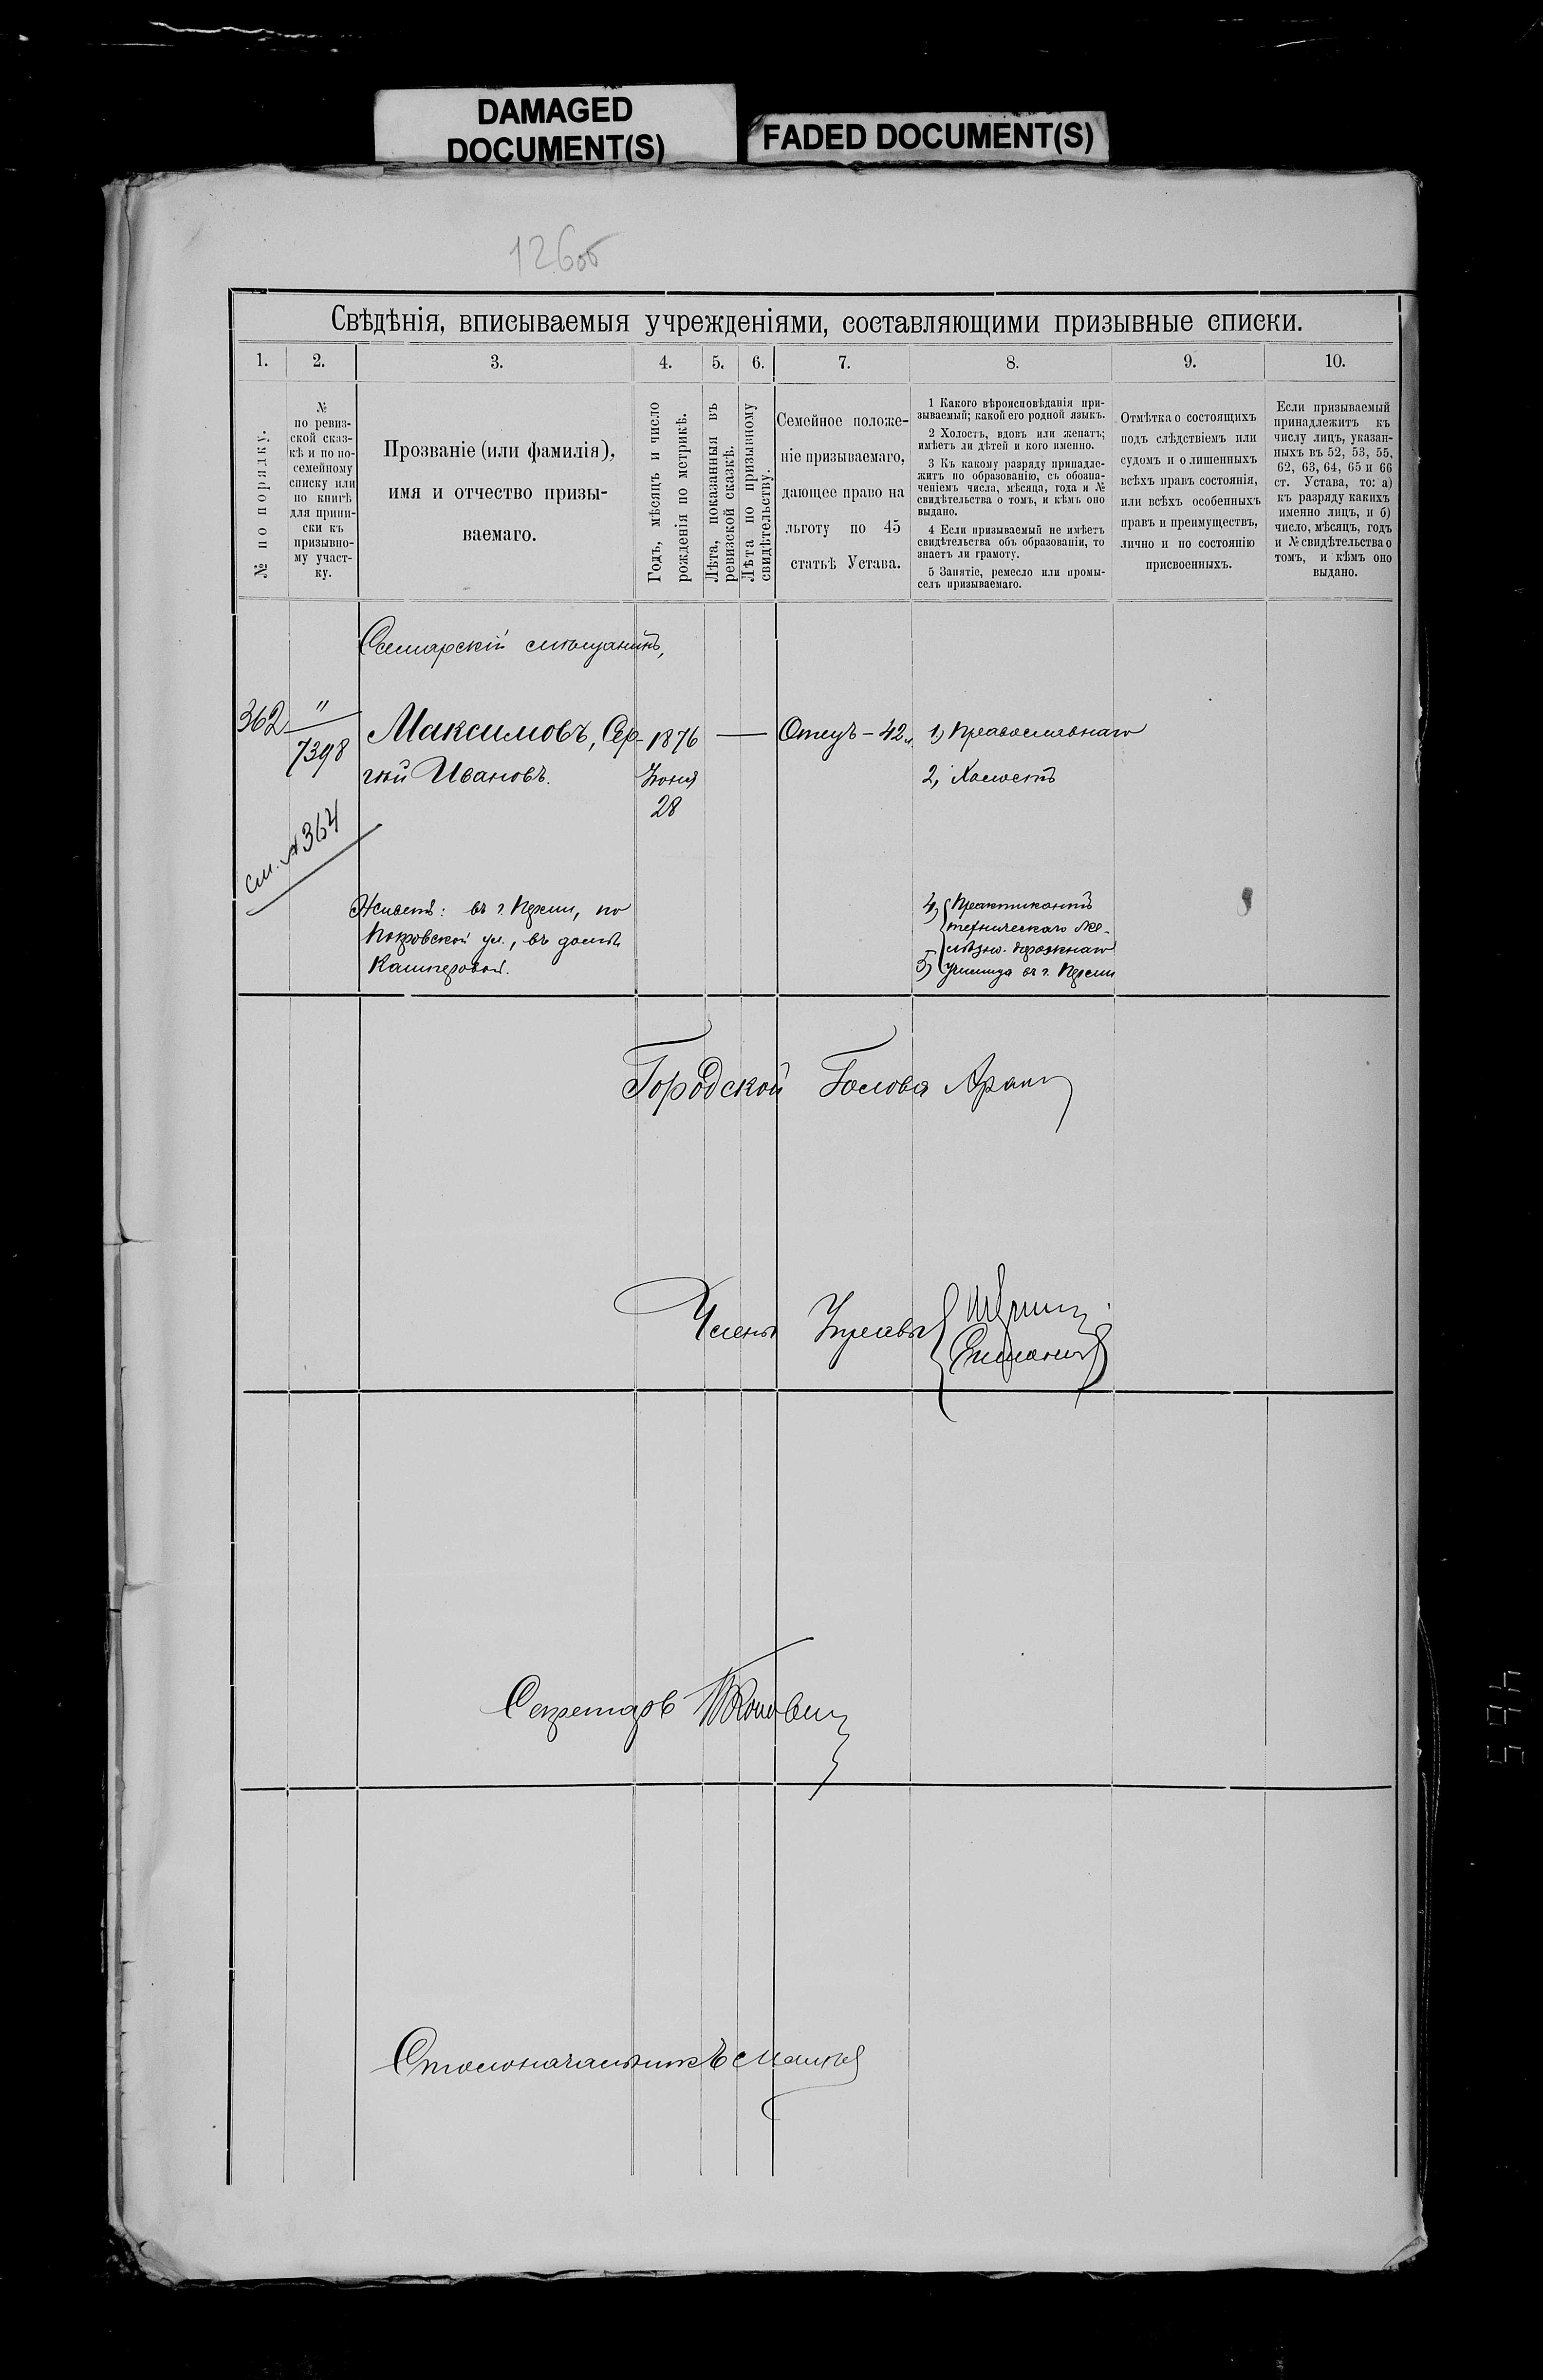 DAMAGED
DOCUMENT(S)
FADED DOCUMENT(S)
126об
Свѣдѣнія, вписываемыя учрежденіями, составляющими призывные списки.
1.
2.
3.
4.
5.
6.
7.
8.
9.
10.
№ по порядку.
№
по ревиз-
ской сказ-
кѣ и по по-
семейному
списку или
по книгѣ
для припи-
ски къ
призывно-
му участ-
ку.
Прозваніе (или фамилія),
имя и отчество призы-
ваемаго.
Годъ, мѣсяцъ и число
рожденія по метрикѣ.
Лѣта, показанныя въ
ревизской сказкѣ.
Лѣта по призывному
свидѣтельству.
Семейное положе-
ніе призываемаго,
дающее право на
льготу по 45
статьѣ Устава.
1 Какого вѣроисповѣданія при-
зываемый; какой его родной языкъ.
2 Холостъ, вдовъ или женатъ;
имѣетъ ли дѣтей и кого именно.
3 Къ какому разряду принадле-
житъ по образованію, съ обозна-
ченіемъ числа, мѣсяца, года и №
свидѣтельства о томъ, и кѣмъ оно
выдано.
4 Если призываемый не имѣетъ
свидѣтельства объ образованіи, то
знаетъ ли грамоту.
5 Занятіе, ремесло или промы-
селъ призываемаго.
Отмѣтка о состоящихъ
подъ слѣдствіемъ или
судомъ и о лишенныхъ
всѣхъ правъ состоянія,
или всѣхъ особенныхъ
правъ и преимуществъ,
лично и по состоянію
присвоенныхъ.
Если призываемый
принадлежитъ къ
числу лицъ, указан-
ныхъ въ 52, 53, 55,
62, 63, 64, 65 и 66
ст. Устава, то: а)
къ разряду какихъ
именно лицъ, и б)
число, мѣсяцъ, годъ
и № свидѣтельства о
томъ, и кѣмъ оно
выдано.
мѣщанинъ,
362 " 7398
Максимовъ, Сер-
гѣй Ивановъ.
1876
Іюня
28
—
Отецъ – 42 л.
1, Православнаго
2, Холостъ
см. № 364
Живетъ: въ г. Перми, по
Покровской ул., въ домѣ
Кашперовой.
4, Практикантъ
техническаго же-
лѣзно-дорожнаго
5, училища въ г. Перми
Городской Голова
Члены Управы
Секретарь
Столоначальникъ
465